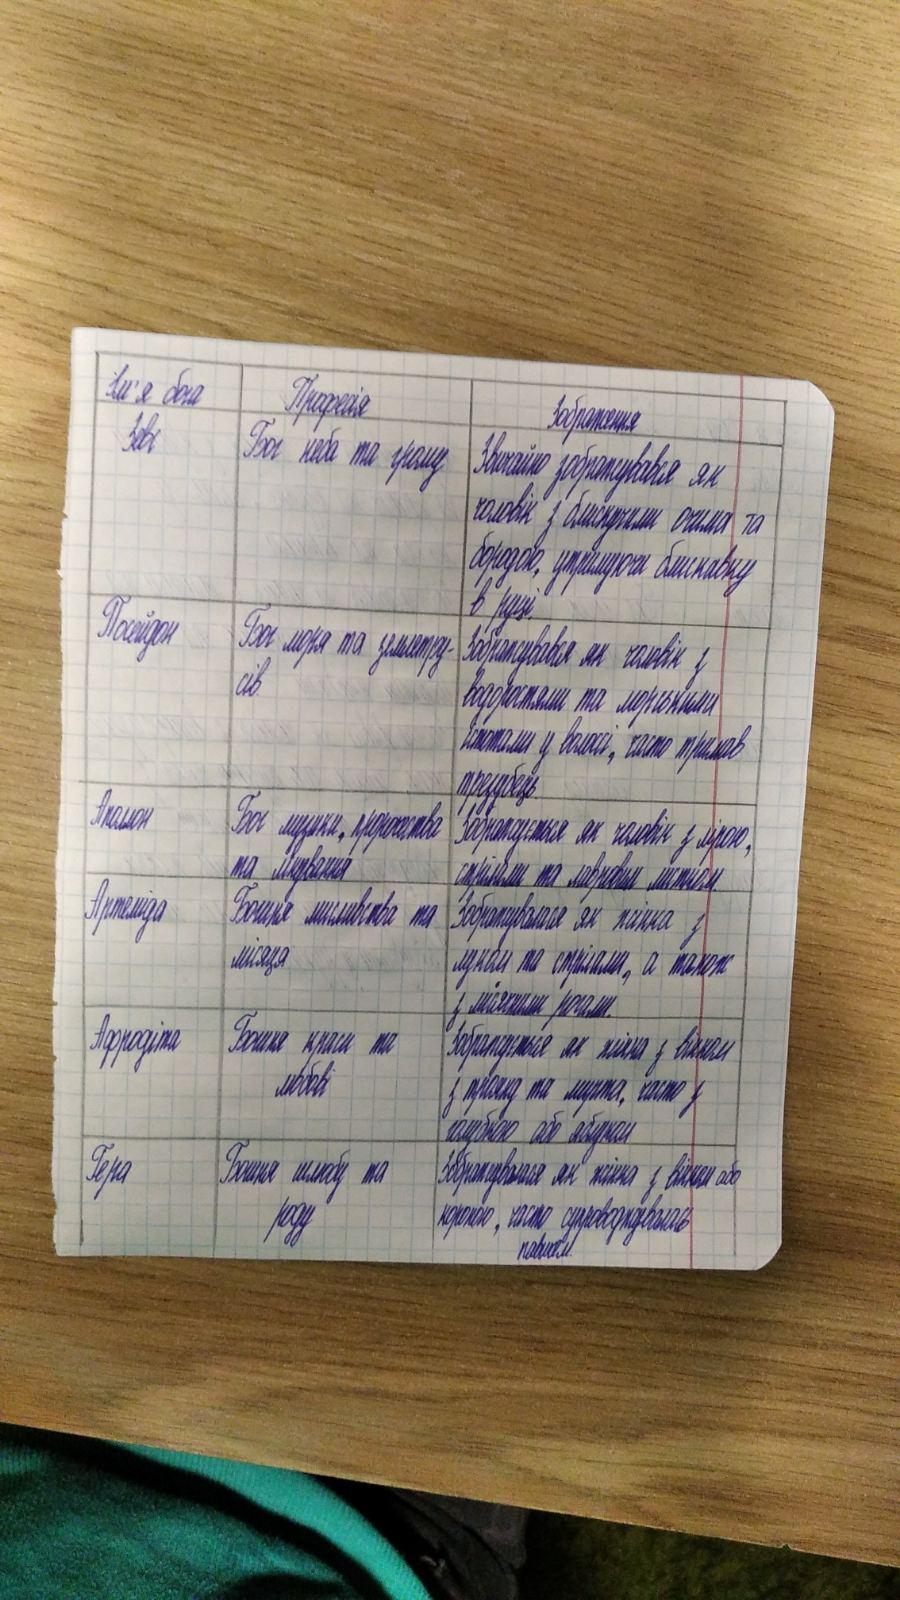 Ім'я бога Професія Зображення
Зевс Бог неба та грому Звичайно зображувався як
чоловік з блискучими очима та
бородою, утримуючи блискавку
в руці.
Посейдон Бог моря та землетру- Зображувався як чоловік з
сів водоростями та морськими
істотами у волоссі, часто тримав
тризубець
Аполлон Бог музики, пророцтва Зображується як чоловік з лірою,
та лікування стрілами та лавровим листком.
Артеміда Богиня мисливства та Зображувалася як жінка з
місяця луком та стрілами, а також
з місячними рогами.
Афродіта Богиня краси та Зображується як жінка з вінком
любові з троянд та мирта, часто з
голубкою або яблуком
Гера Богиня шлюбу та Зображувалася як жінка з вінком або
роду короною, часто супроводжувалась
павичем.